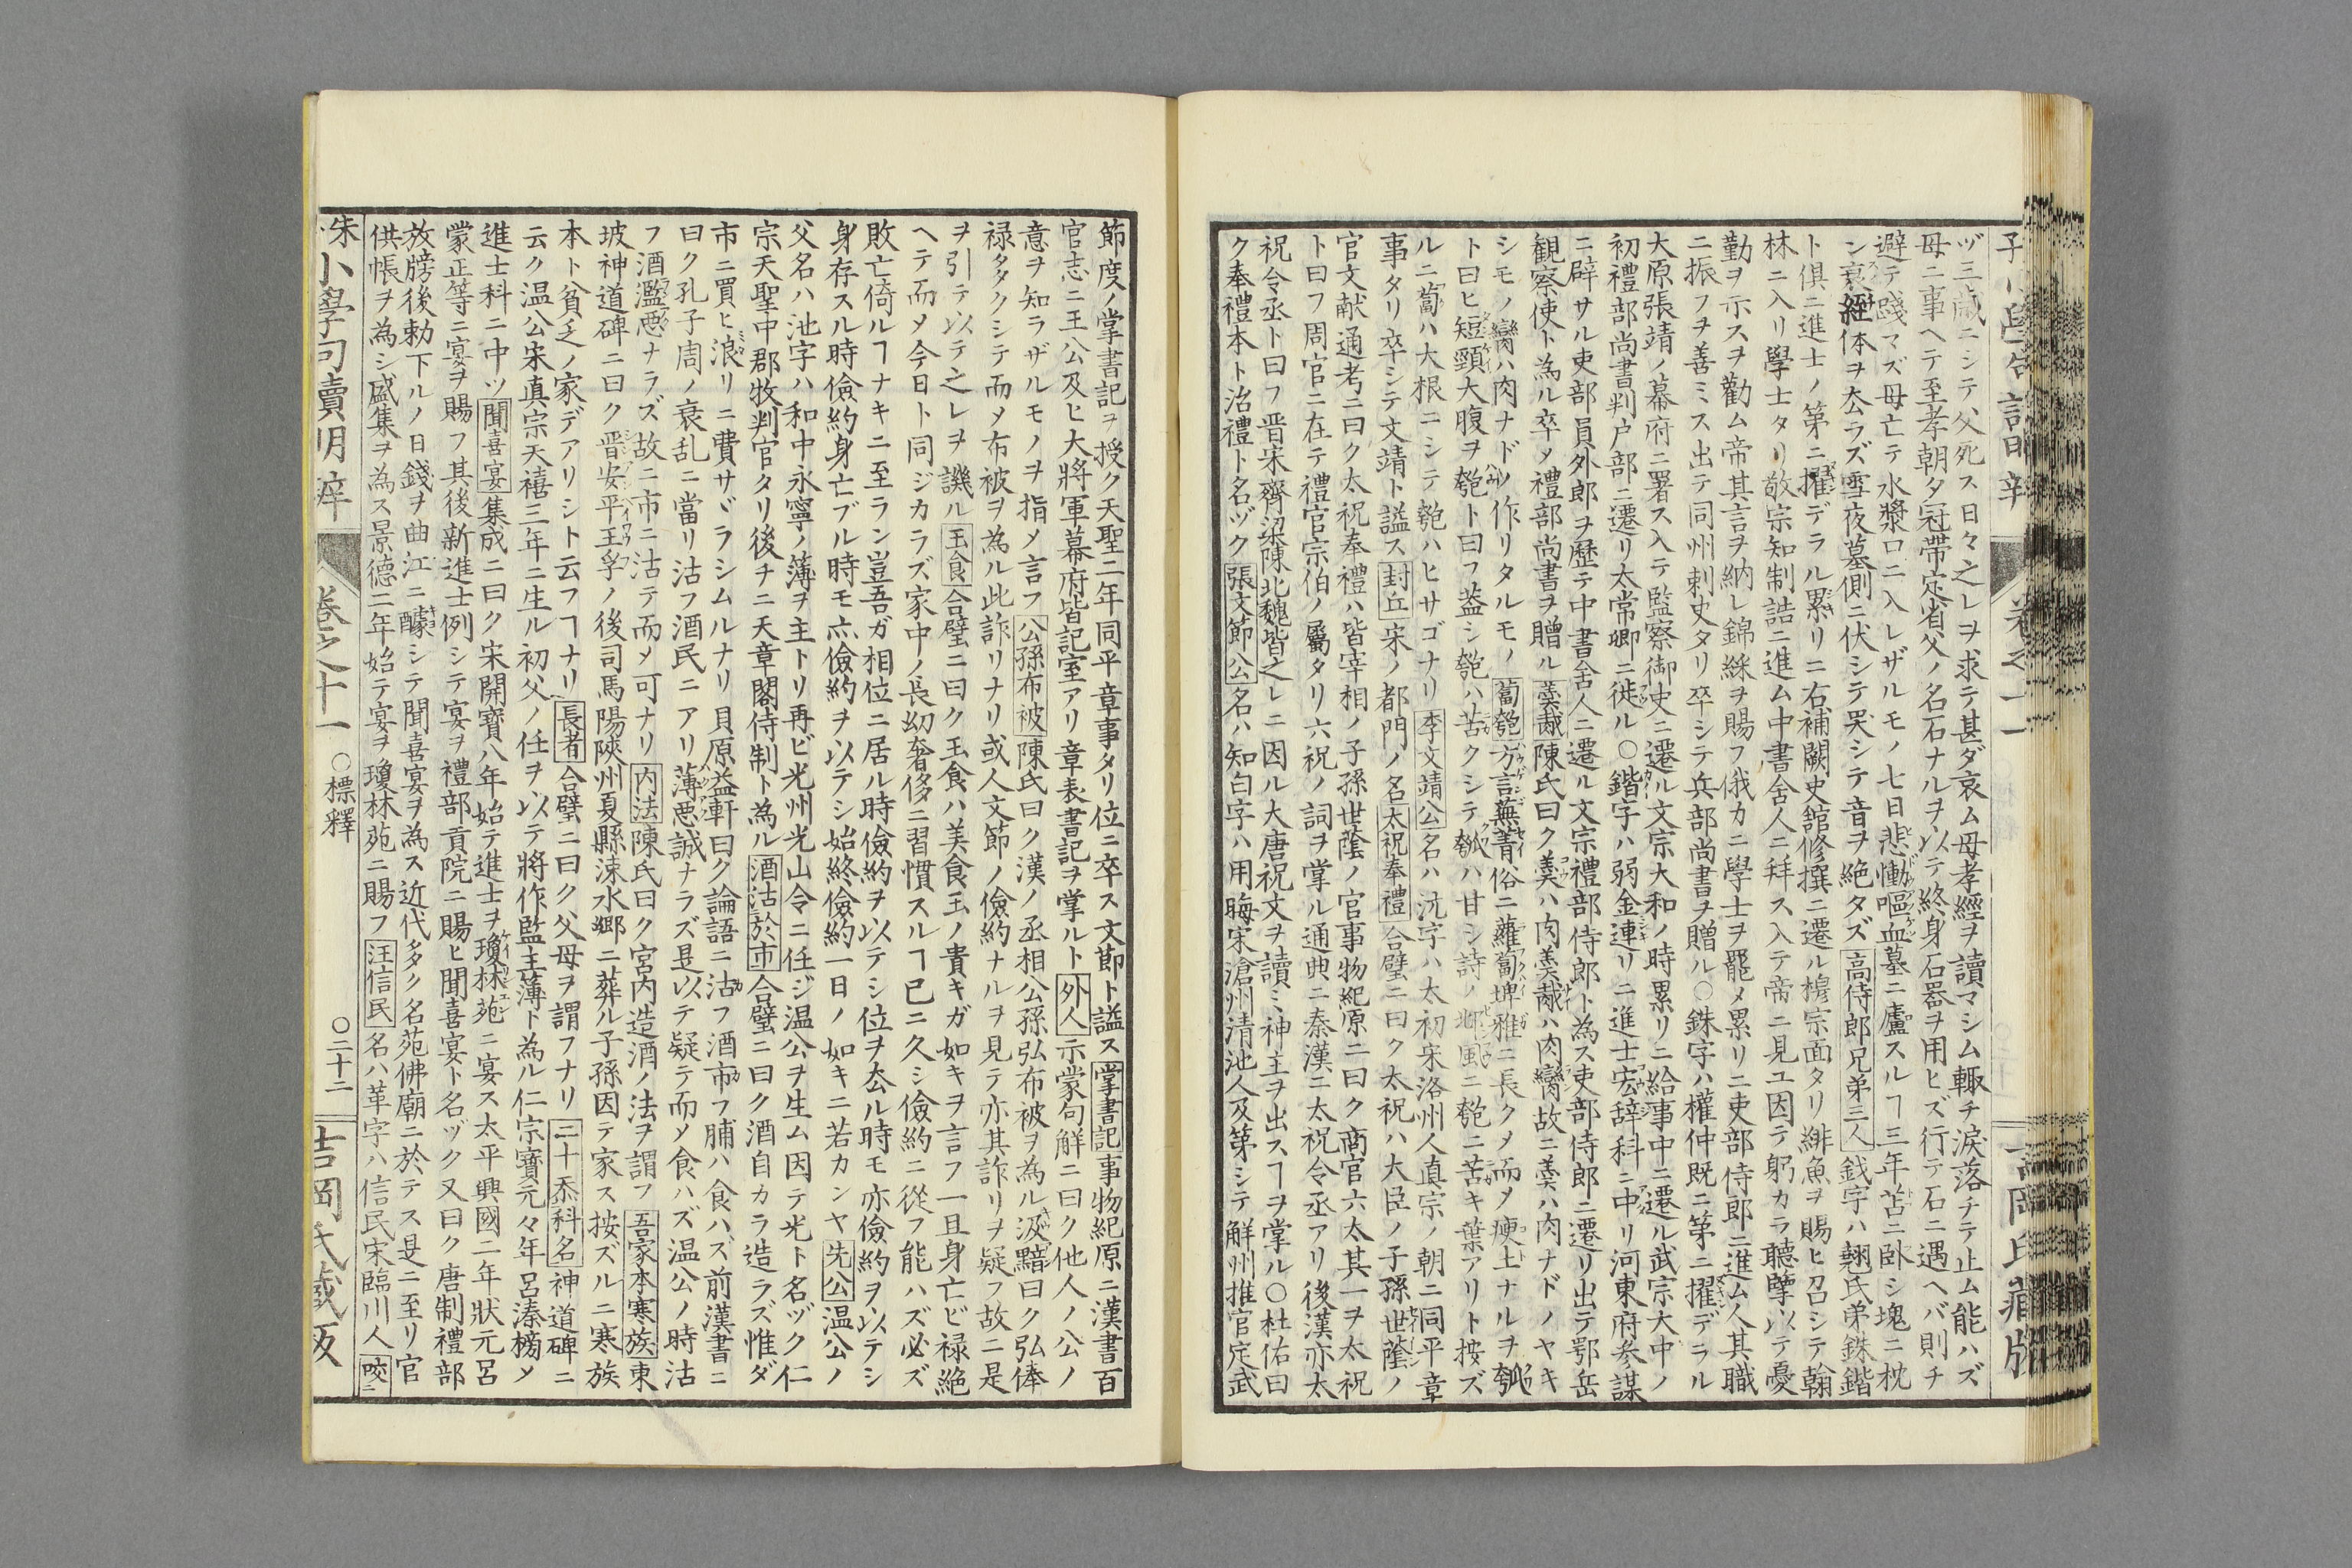 ヅ三歳ニシテ父死ス日々之レヲ求テ甚ダ哀ム母孝經ヲ讀マシム輙チ涙落チテ止ム能ハズ
母ニ事ヘテ至孝朝夕冠帶定省父ノ名石ナルヲ以テ終身石器ヲ用ヒズ行テ石ニ遇ヘバ則チ
避テ踐マズ母亡テ水漿口ニ入レザルモノ七日悲慟嘔血墓ニ廬スルヿ三年苫ニ臥シ塊ニ枕
ン衰絰体ヲ厺ラズ雪夜墓側ニ伏シテ哭シテ音ヲ絶タズ高侍郎兄弟三人錢字ハ翹氏弟銖鍇
ト倶ニ進士ノ第ニ擢デラル累リニ右補闕史館修撰ニ遷ル穆宗面タリ緋魚ヲ賜ヒ召シテ翰
林ニ入リ學士タリ敬宗知制誥ニ進ム中書舍人ニ拜ス入テ帝ニ見ユ因テ躬カラ聽孽以テ憂
勤ヲ示スヲ勸ム帝其言ヲ納レ錦綵ヲ賜フ俄カニ學士ヲ罷メ累リニ吏部侍郎ニ進ム人其職
ニ振フヲ善ミス出テ同州刺史タリ卒シテ兵部尚書ヲ贈ル○銖字ハ權仲既ニ第ニ擢デラル
大原張靖ノ幕府ニ署ス入テ監察御史ニ遷ル文宗大和ノ時累リニ給事中ニ遷ル武宗大中ノ
初禮部尚書判户部ニ遷リ太常卿ニ徙ル○鍇字ハ弱金連リニ進士宏辞科ニ中リ河東府参謀
ニ辟サル吏部員外郎ヲ歴テ中書舍人ニ遷ル文宗禮部侍郎ト為ス吏部侍郎ニ遷リ出テ鄂岳
観察使ト為ル卒メ禮部尚書ヲ贈ル羮胾陳氏曰ク羮ハ肉羮胾ハ肉臠故ニ羮ハ肉ナドノヤキ
シモノ臠ハ肉ナドツ作リタルモノ蔔匏方言蕪菁俗ニ蘿蔔埤雅ニ長クメ而メ痩上ナルヲ瓠
ト曰ヒ短頸大腹ヲ匏ト曰フ葢シ匏ハ苦クシテ瓠ハ甘シ詩ノ邶風ニ匏ニ苦キ葉アリト按ズ
ルニ蔔ハ大根ニシテ匏ハヒサゴナリ李文靖公名ハ沆字ハ太初宋洛州人真宗ノ朝ニ同平章
事タリ卒シテ文靖ト謚ス封丘宋ノ都門ノ名太祝奉禮合璧ニ曰ク太祝ハ大臣ノ子孫世蔭ノ
官文献通考ニ曰ク太祝奉禮ハ皆宰相ノ子孫世蔭ノ官事物紀原ニ曰ク商官六太其一ヲ太祝
ト曰フ周官ニ在テ禮官宗伯ノ屬タリ六祝ノ詞ヲ掌ル通典ニ秦漢ニ太祝令丞アリ後漢亦太
祝令丞ト曰フ晋宋齊梁陳北魏皆之レニ因ル大唐祝文ヲ讀ミ神主ヲ出スヿヲ掌ル○杜佑曰
ク奉禮本ト治禮ト名ヅク張文節公名ハ知白字ハ用晦宋滄州清池人及第シテ解州推官定武
節度ノ掌書記ヲ授ク天聖二年同平章事タリ位ニ卒ス文節ト謚ス掌書記事物紀原ニ漢書百
官志ニ王公及ヒ大將軍幕府皆記室アリ章表書記ヲ掌ルト外人示蒙句解ニ曰ク他人ノ公ノ
意ヲ知ラザルモノヲ指メ言フ公孫布被陳氏曰ク漢ノ丞相公孫弘布被ヲ為ル汲黯曰ク弘俸
禄タタクシテ而メ布被ヲ為ル此詐リナリ或人文節ノ儉約ナルヲ見テ亦其詐リヲ疑フ故ニ是
ヲ引テ以テ之レヲ譏ル玉食合璧ニ曰ク玉食ハ美食玉ノ貴キガ如キヲ言フ一旦身亡ビ禄絶
ヘテ而メ今日ト同ジカラズ家中ノ長幼奢侈ニ習慣スルヿ已ニ久シ儉約ニ從フ能ハズ必ズ
敗亡倚ルヿナキニ至ラン豈吾ガ相位ニ居ル時儉約ヲ以テシ位ヲ厺ル時モ亦儉約ヲ以テシ
身存スル時儉約身亡ブル時モ亦儉約ヲ以テシ始終儉約一日ノ如キニ若カンヤ先公温公ノ
父名ハ池字ハ和中永寧ノ薄ヲ主トリ再ビ光州光山令ニ任ジ温公ヲ生ム因テ光ト名ヅク仁
宗天聖中郡牧判官タリ後チニ天章閣侍制ト為ル酒沽於市合璧ニ曰ク酒自カラ造ラズ惟ダ
市ニ買ヒ浪リニ費サヾラシムルナリ貝原益軒曰ク論語ニ沽フ酒市フ脯ハ食ハズ前漢書ニ
曰ク孔子周ノ衰乱ニ當リ沽フ酒民ニアリ薄悪誠ナラズ是以テ疑テ而メ食ハズ温公ノ時沽
フ酒濫悪ナラズ故ニ市ニ沽テ而メ可ナリ内法陳氏曰ク宮内造酒ノ法ヲ謂フ吾家本寒族東
坡神道碑ニ曰ク晋安平王孚ノ後司馬陽陝州夏縣涑水郷ニ葬ル子孫因テ家ス按ズルニ寒族
本ト貧乏ノ家デアリシト云フヿナリ長者合璧ニ曰ク父母ヲ謂フナリ二十忝科名神道碑ニ
云ク温公宋真宗天禧三年ニ生ル初父ノ任ヲ以テ將作監主薄ト為ル仁宗寶元々年呂溱榜メ
進士科ニ中ツ聞喜宴集成ニ曰ク宋開寶八年始テ進士ヲ瓊林苑ニ宴ス太平興國二年狀元呂
蒙正等ニ宴ヲ賜フ其後新進士例シテ宴ヲ禮部貢院ニ賜ヒ聞喜宴ト名ヅク又曰ク唐制禮部
放牓後勅下ルノ日錢ヲ曲江ニ醵シテ聞喜宴ヲ為ス近代多ク名苑佛廟ニ於テス是ニ至リ官
供帳ヲ為シ盛集ヲ為ス景德二年始テ宴ヲ瓊林苑ニ賜フ汪信民名ハ革字ハ信民宋臨川人咬
小學句讀明辛 卷之十一 ○標釋 ○二十二 吉岡氏藏版